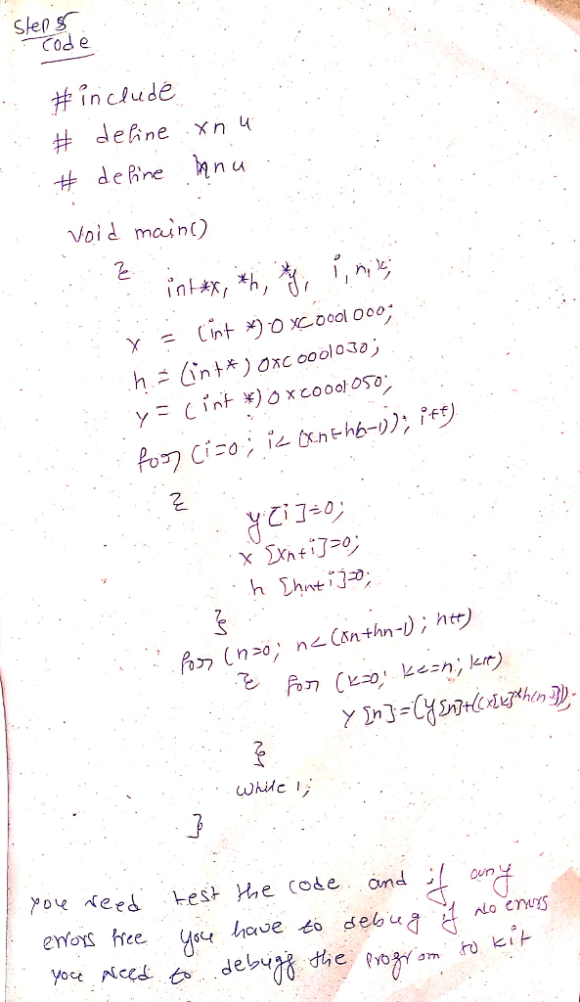 Step 5
Code
# include
# define xn 4
# define hn 4
Void main()
{
int *x, *h, *y, i, n, k;
x = (int *) 0xC0001000;
h = (int *) 0xC0001030;
y = (int *) 0xC0001050;
for (i=0; i< (xn+hn-1)); i++)
{
y[i]=0;
x [xn+i]=0;
h [hn+i]=0;
}
for (n=0; n< (xn+hn-1); n++)
{ for (k=0; k<=n; k++)
y [n]=(y[n]+((x[k]*h(n
}
while 1;
}
you need test the code and if any
errors free you have to debug if No errors
you need to debugg the program to kit